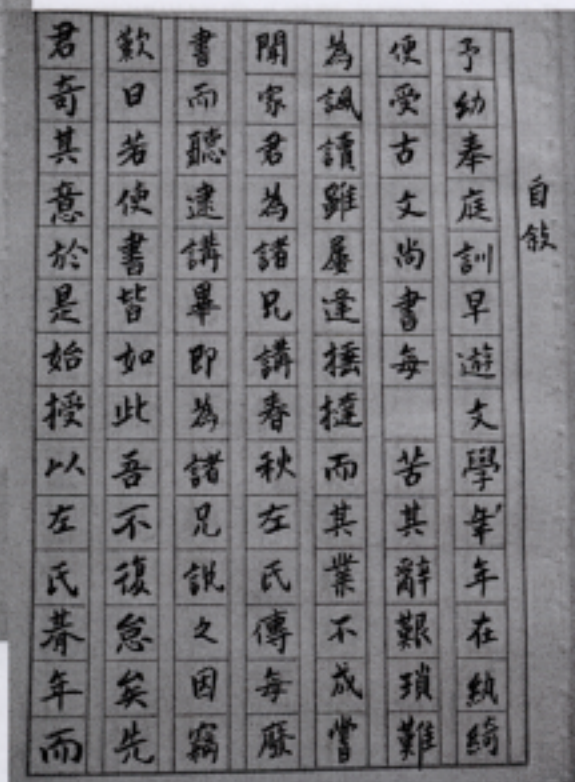 自敍
予幼奉庭訓早遊文學年在紈綺
便受古文尚書每 苦其辭艱瑣難
為諷讀雖屢逢捶撻而其業不成嘗
聞家君為諸兄講春秋左氏傳每廢
書而聽逮講畢即為諸兄説之因竊
歎曰若使書皆如此吾不復怠矣先
君奇其意於是始授以左氏朞年而